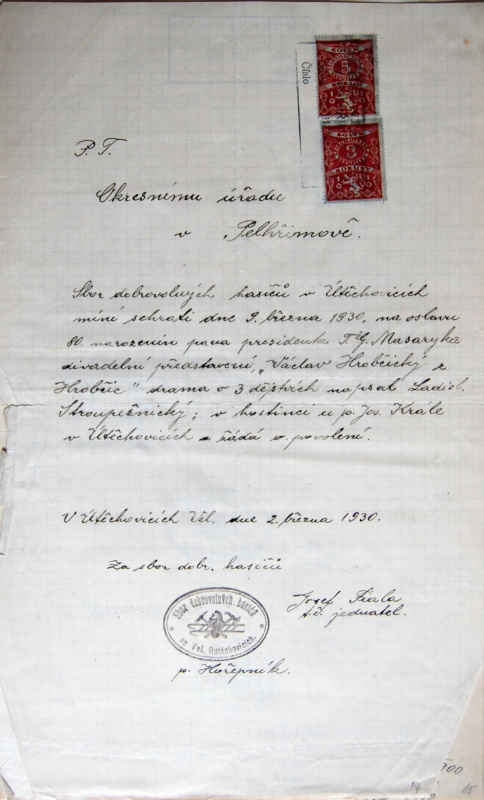 Číslo
KOLEK
5
KORUN
KOLEK
3
KORUNY
P. T.
Okresnímu úřadu
v Pelhřimově.
Sbor dobrovolných hasičů v Útěchovicích
míní sehrati dne 9. března 1930, na oslavu
80 narozenin pana presidenta T. G. Masaryka
divadelní představení „Václav Hrobčický z
Hrobčic" drama o 3 dějstvích napsal Ladisl.
Stroupežnický; v hostinci u p. Jos. Krále
v Útěchovicích a žádá o povolení.
V Útěchovicích Vel. dne 2. března 1930.
Za sbor dobr. hasičů
Josef Fiala
t.č. jednatel.
Sbor dobrovolných hasičů
ve Vel. Outěchovicích.
p. Hořepník.
14
15